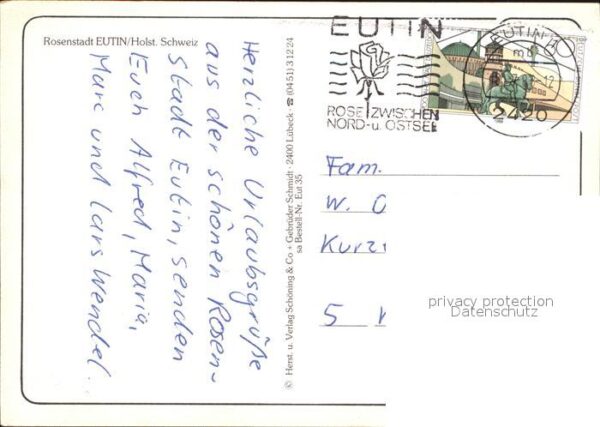 Rosenstadt EUTIN/Holst. Schweiz
Herzliche Urlaubsgrüße
aus der schönen Rosen-
stadt Eutin, senden
Euch Alfred, Maria,
Marc und Lars Wendel.
© Herst. u. Verlag Schöning & Co + Gebrüder Schmidt · 2400 Lübeck · ☎ (04 51) 3 12 24
sa Bestell-Nr. Eut 35
EUTIN
ROSE ZWISCHEN
NORD- u. OSTSEE
EUTIN
2420
Fam.
W.
5
privacy protection
Datenschutz